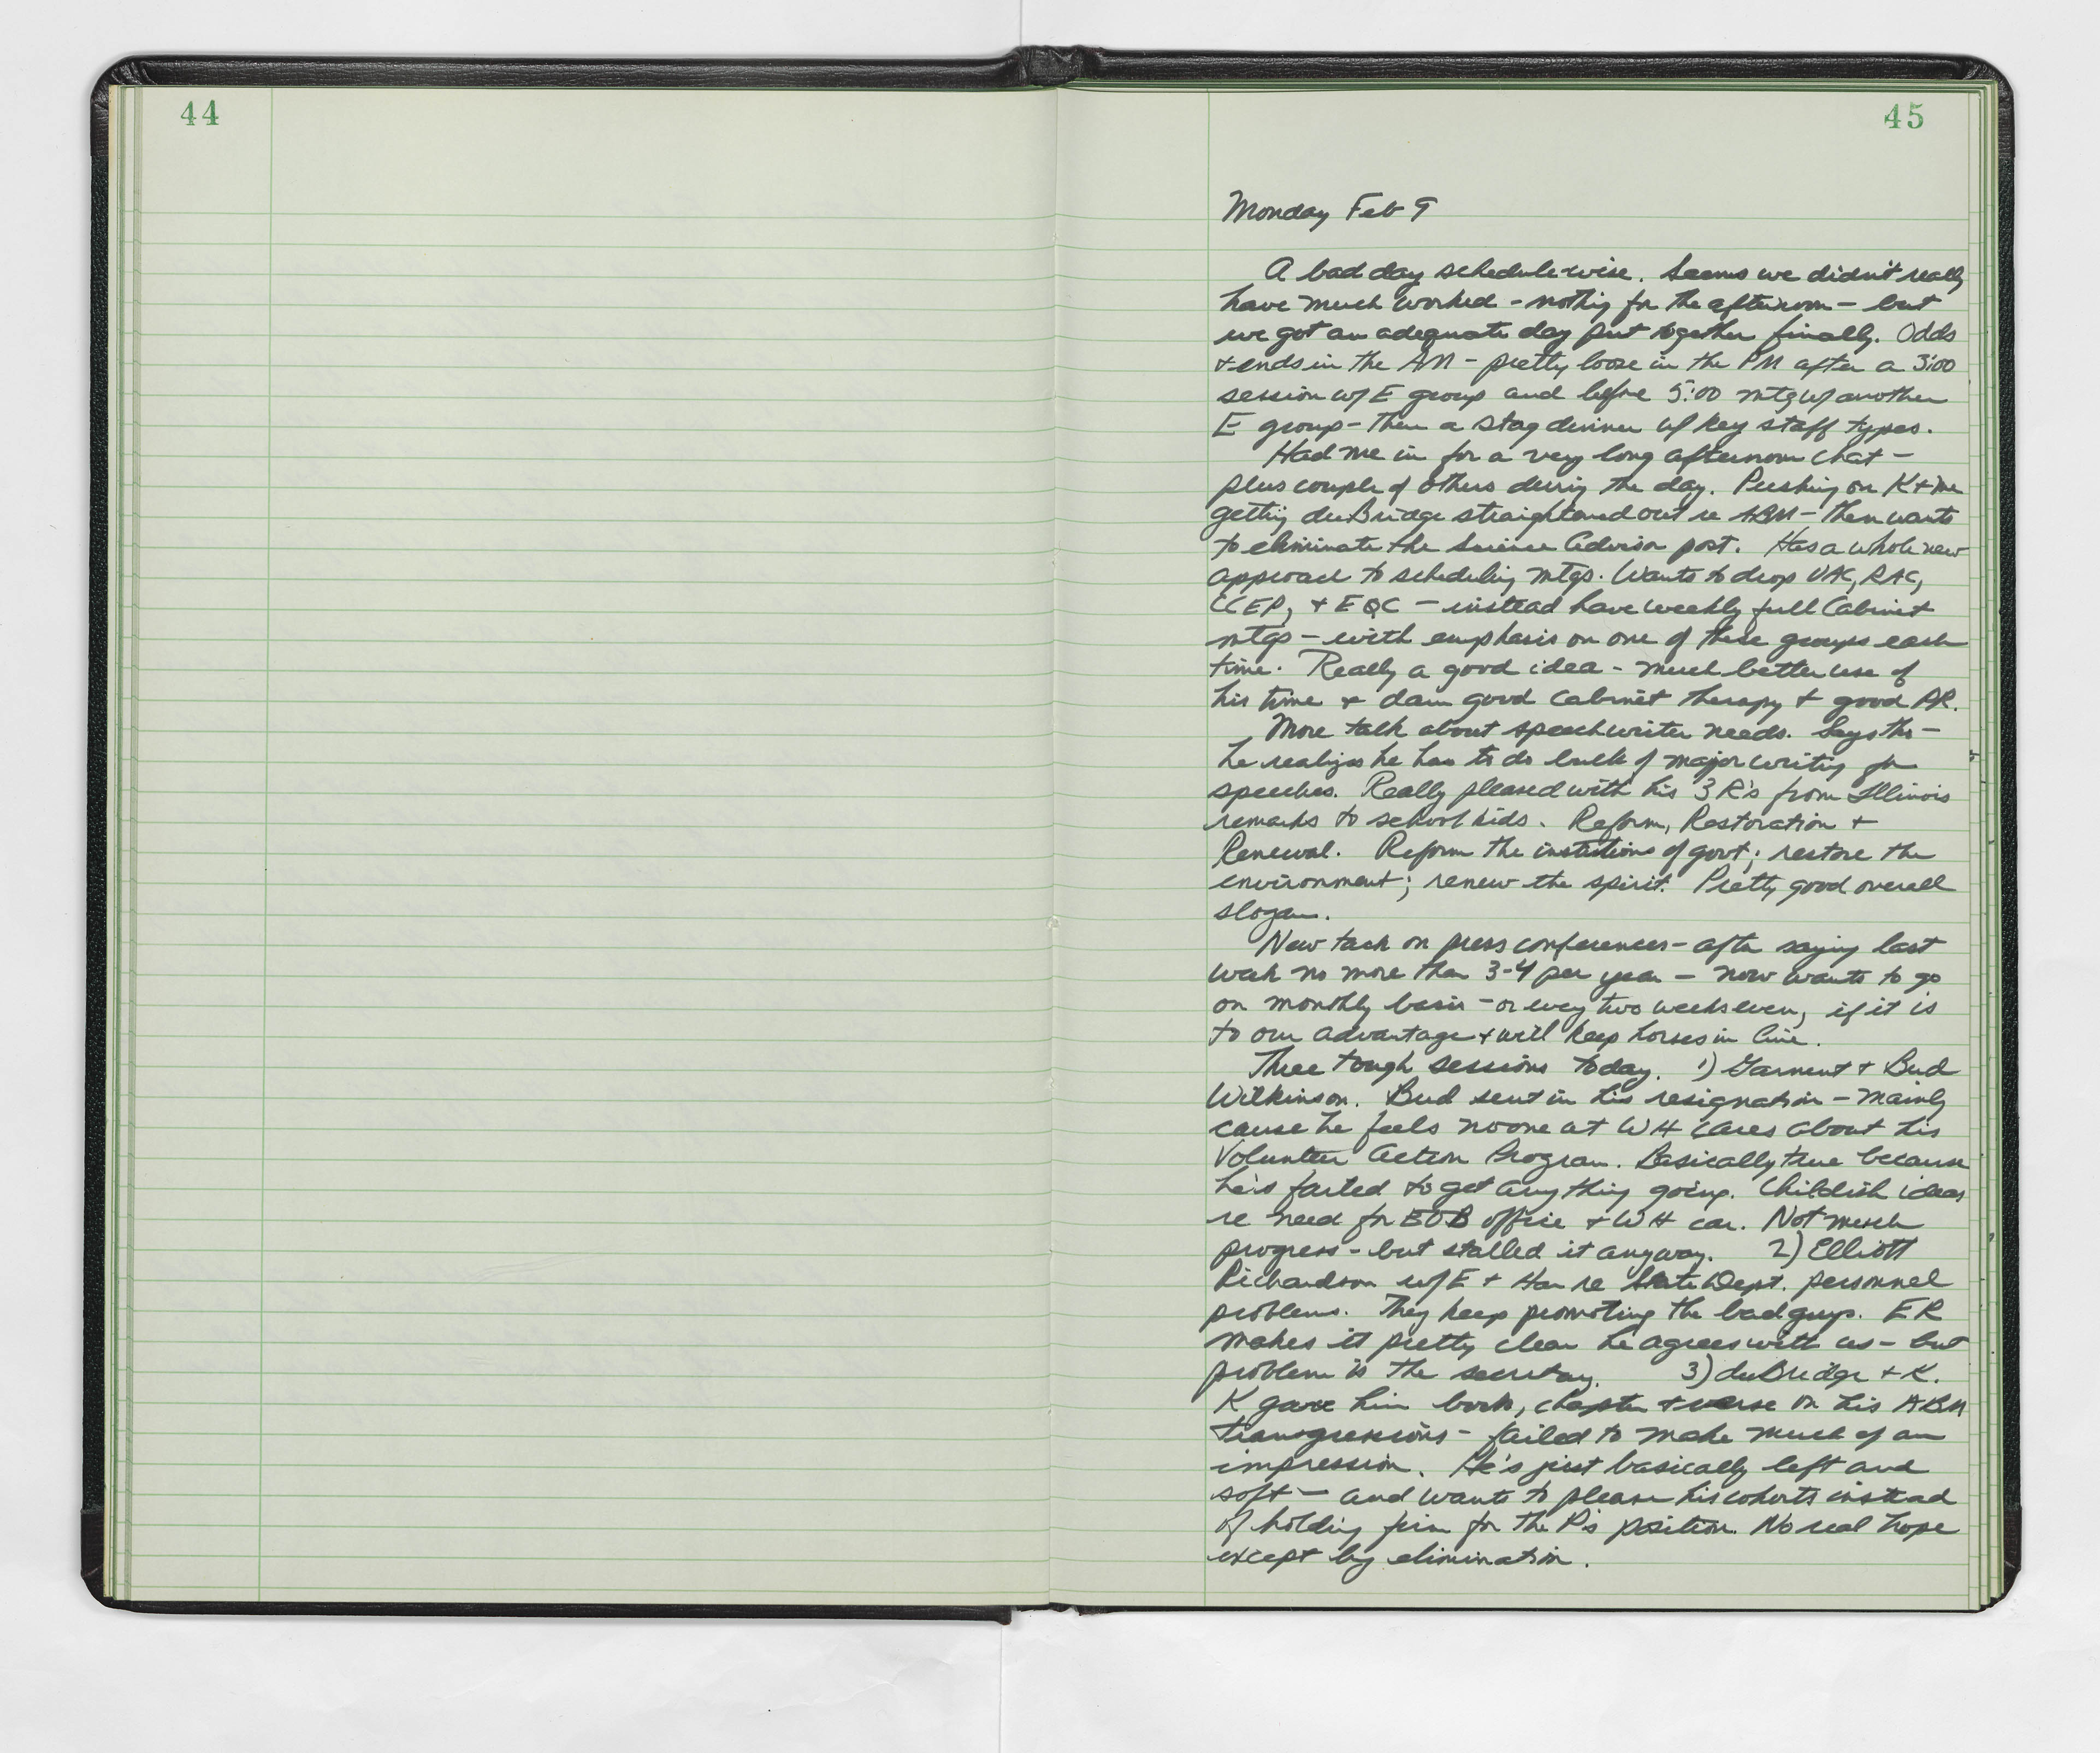 44
45
Monday Feb 9
A bad day schedule-wise. Seems we didn't really
have much worked - nothing for the afternoon - but
we got an adequate day put together finally. Odds
+ ends in the AM - pretty loose in the PM after a 3:00
session w/ E group and before 5:00 mtg w/ another
E group - then a stag dinner w/ key staff types.
Had me in for a very long afternoon chat -
plus couple of others during the day. Pushing on K + me
getting duBridge straightened out re ABM - then wants
to eliminate the Science Advisor post. Has a whole new
approach to scheduling mtgs. Wants to drop UAC, RAC,
CCEP, + EQC - instead have weekly full Cabinet
mtgs - with emphasis on one of these groups each
time. Really a good idea - much better use of
his time + darn good Cabinet therapy + good PR.
More talk about speechwriter needs. Says tho -
he realizes he has to do bulk of major writing for
speeches. Really pleased with his 3 R's from Illinois
remarks to school kids. Reform, Restoration +
Renewal. Reform the institutions of govt; restore the
environment; renew the spirit. Pretty good overall
slogan.
New tack on press conferences - after saying last
week no more than 3-4 per year - now wants to go
on monthly basis - or every two weeks even, if it is
to our advantage + will keep horses in line.
Three tough sessions today. 1) Garment + Bud
Wilkinson. Bud sent in his resignation - mainly
cause he feels no one at WH cares about his
Volunteer Action Program. Basically true because
he's failed to get anything going. Childish ideas
re need for EOB office + WH car. Not much
progress - but stalled it anyway. 2) Elliott
Richardson w/ E + Har re State Dept. personnel
problems. They keep promoting the bad guys. ER
makes it pretty clear he agrees with us - but
problem is the secretary. 3) duBridge + K.
K gave him book, chapter + verse on his ABM
transgressions - failed to make much of an
impression. He's just basically left and
soft - and wants to please his cohorts instead
of holding firm for the P's position. No real hope
except by elimination.